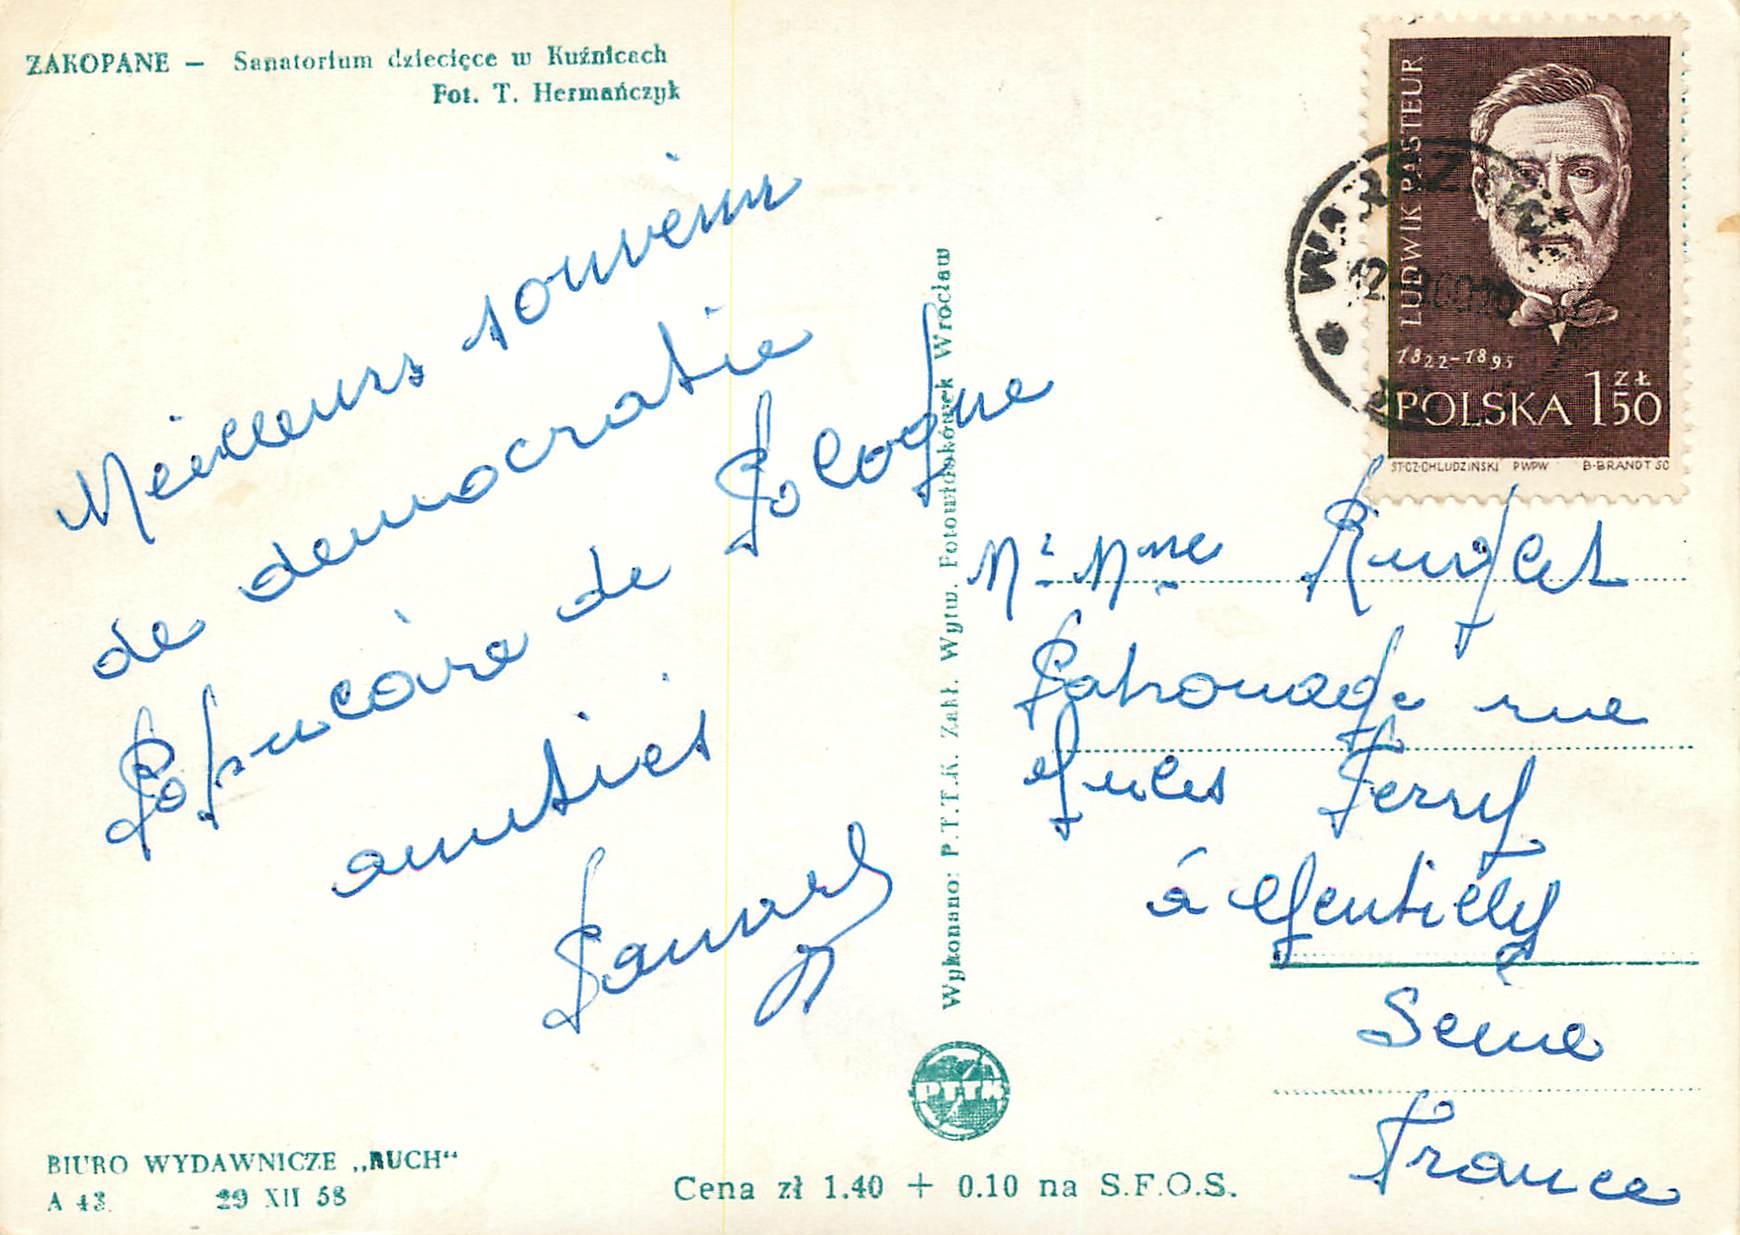 ZAKOPANE — Sanatorium dziecięce w Kuźnicach
Fot. T. Hermańczyk
Meilleurs souvenir
de democratie
Populaire de Pologne
amitiés
LUDWIK PASTEUR
1822-1895
POLSKA 1 ZŁ 50
ST.CZ.CHLUDZIŃSKI PWPW B.BRANDT SC
WARSZAWA
Wykonano: P.T.T.K. Zakł. Wytw. Fotowidokówek Wrocław
Mr Mme
Patronage rue
Jules Ferry
à Gentilly
Seine
France
PTTK
BIURO WYDAWNICZE „RUCH“
A 43. 29 XII 58
Cena zł 1.40 + 0.10 na S.F.O.S.